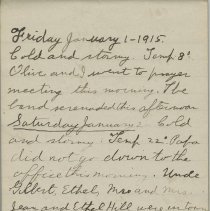 Friday January 1-1915.
Cold and stormy. Temp. 8°
Olive and I went to prayer
meeting this morning. The
band serenaded this afternoon
Saturday January 2. Cold
and stormy. Temp 22° Papa
did not go down to the
office this morning. Uncle
Gilbert, Ethel, Mrs and Mrs.
Jean and Ethel Hill were in town